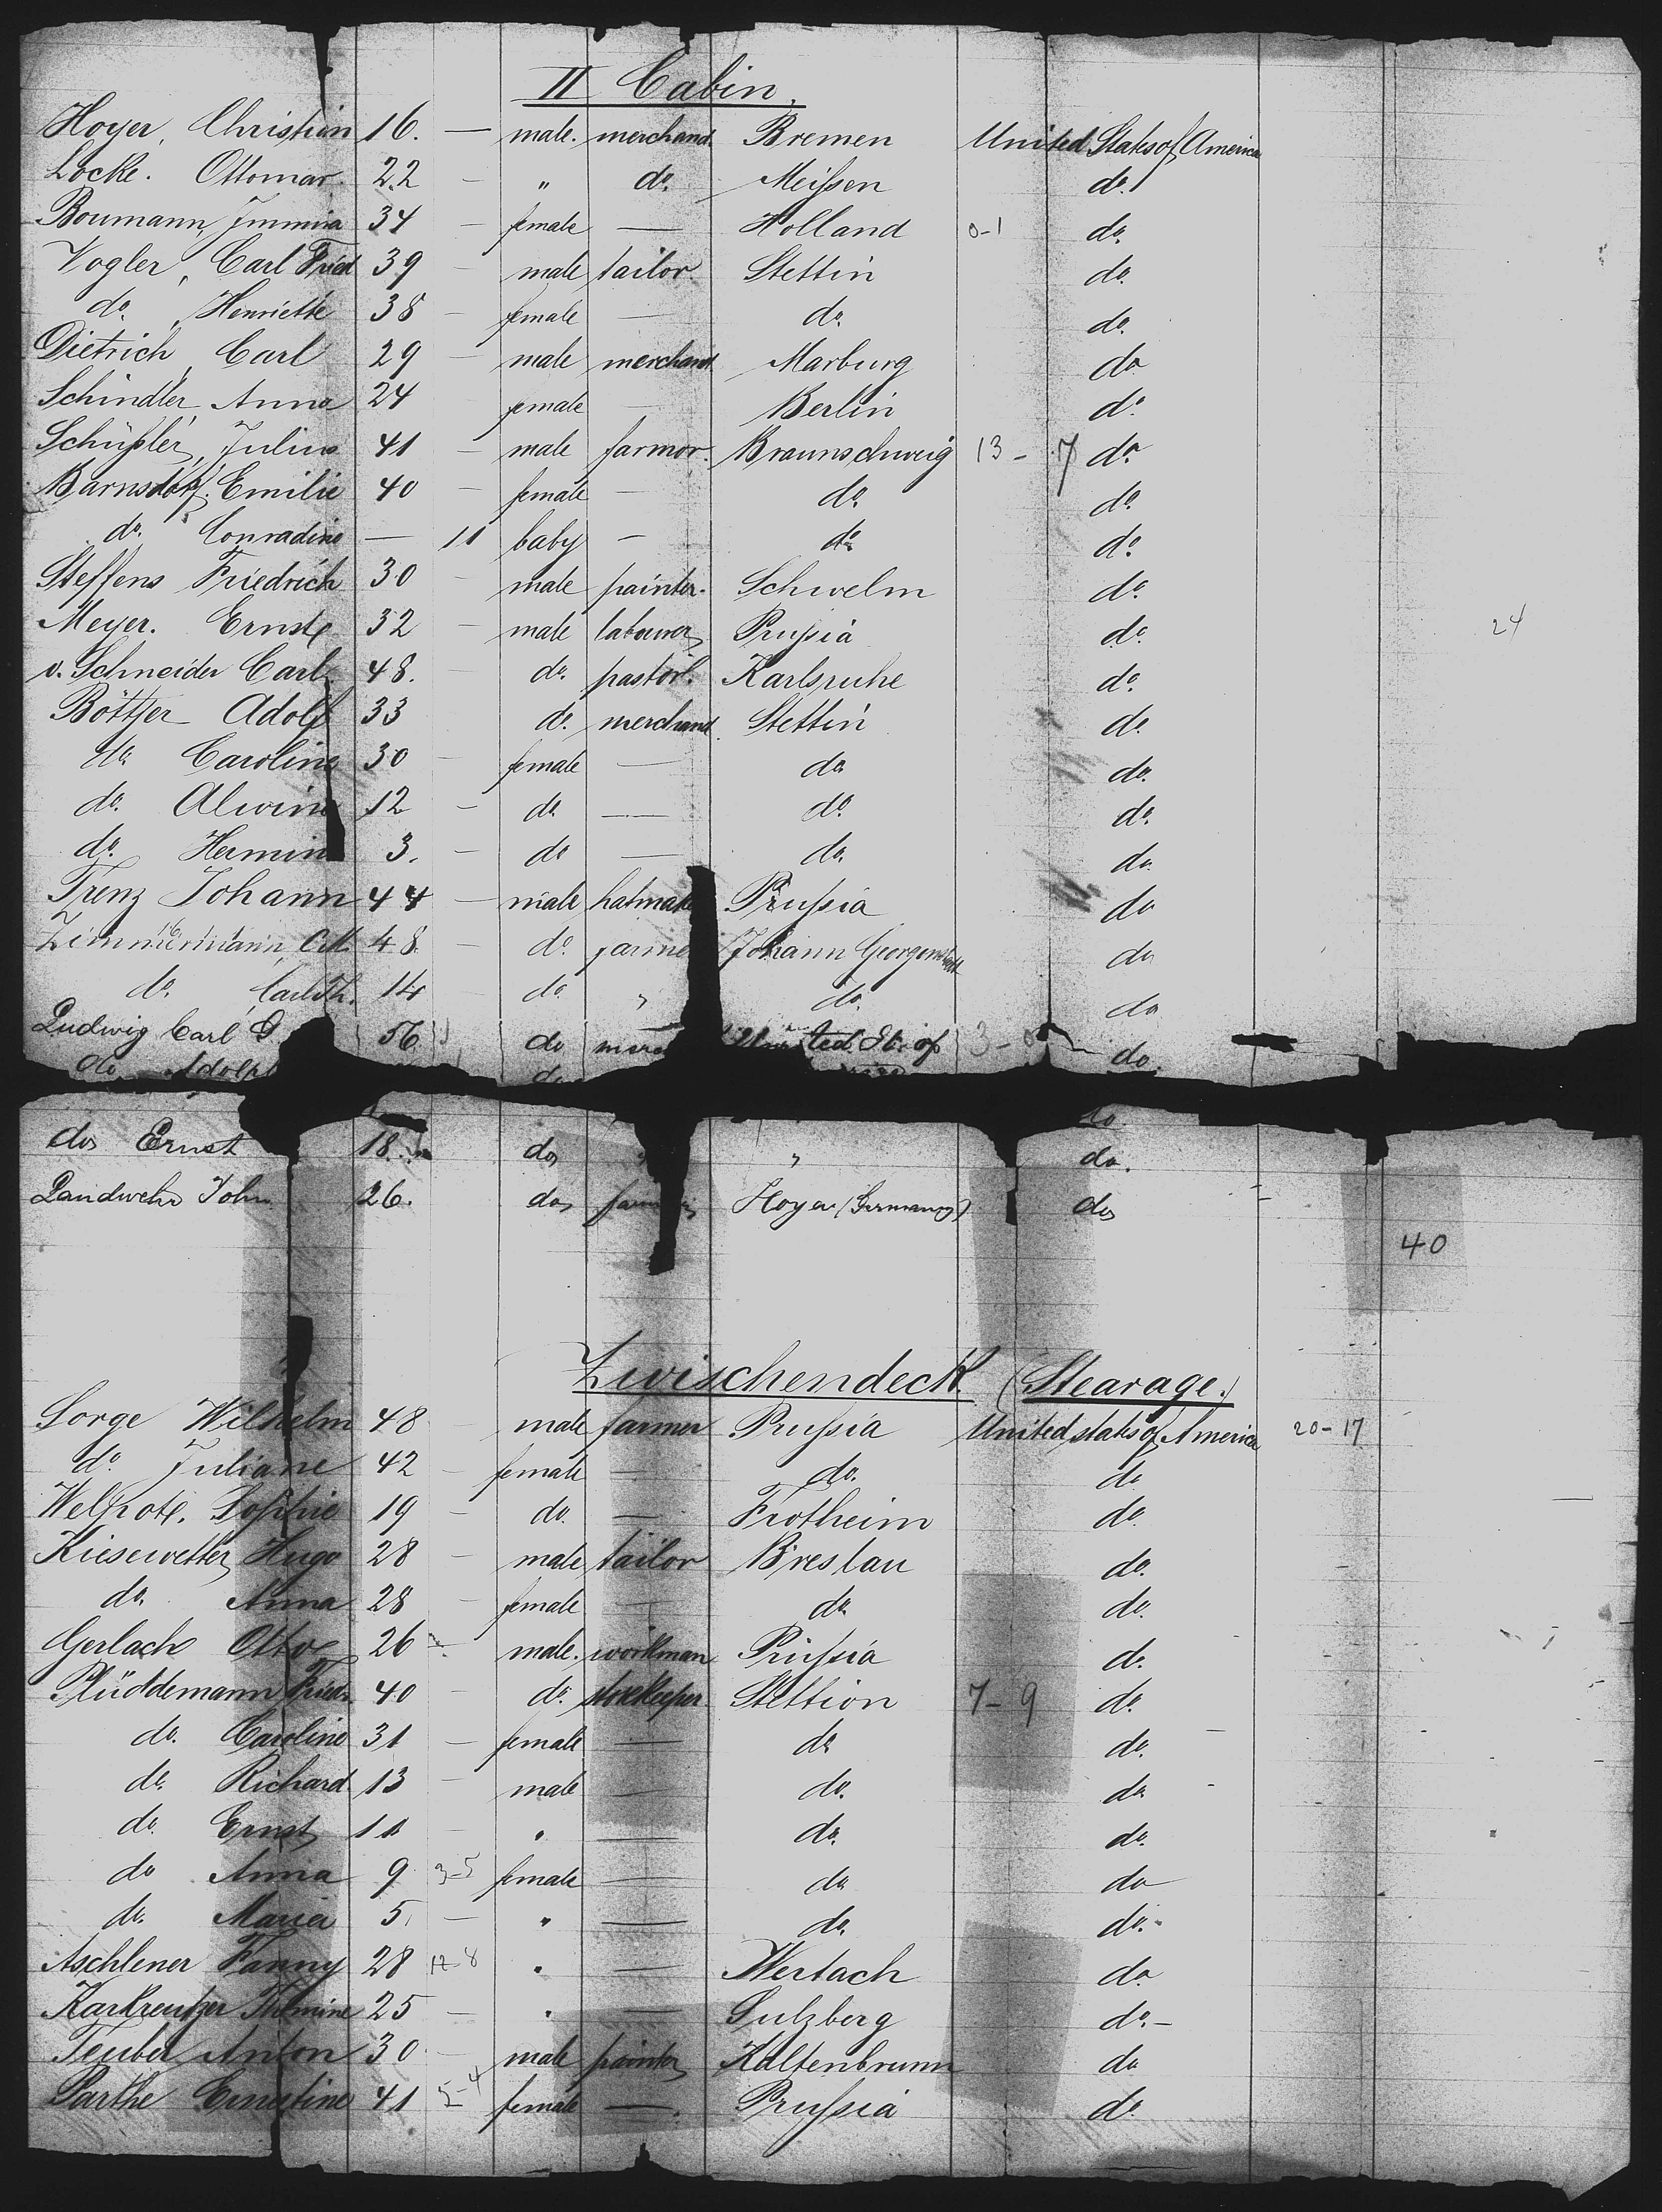 II Cabin.
Hoyer, Christian 16. — male. merchand. Bremen United States of America
Locke. Ottomar. 22 — " do. Meißen do.
Boumann, Immina 34 — female — Holland 0-1 do.
Vogler, Carl Fried 39 — male tailor Stettin do.
do. Henriette 38 — female — do. do.
Dietrich, Carl 29 — male merchand Marburg do
Schindler, Anna 24 female — Berlin do.
Schüßler, Julius 41 — male farmor. Braunschweig 13 - 7 do.
Barnsdorf. Emilie 40 — female — do. do.
do. Conradine — 11 baby — do. do.
Steffens Friedrich 30 — male painter. Schwelm do.
Meyer. Ernst 32 — male labourer Prußia do. 24
v. Schneider Carl 48. — do. pastor. Karlsruhe do.
Böttjer Adolf 33 do. merchand. Stettin do.
do. Caroline 30 — female — do. do.
do. Alwine 12 — do. — do. do.
do. Hermine 3. — do — do. do.
Trenz Johann 44 — male hatmak Prußia do
Zimmermann, C.M. 48 — do. farme Johann Georgenstadt do
do. Carl Th. 14 do. " do. do
Ludwig Carl G 56 do mer United St. of 3- do.
do. Adolph do
do Ernst 18. do " do.
Landwehr John 26. do Hoya (Germany) do
40
Zwischendeck. (Stearage.)
Sorge Wilhelm 48 male farmer Prußia United states of America 20-17
do. Juliane 42 — female — do. do
Sophie 19 — do. — Frotheim do.
Kiesewetter Hugo 28 — male tailor Breslau do.
do. Anna 28 — female — do. do.
Gerlach Otto 26 — male. workman Prußia do.
Plüddemann Fried. 40 — do. storekeeper Stettion 7-9 do.
do. Caroline 31 — female — do. do.
do. Richard 13 — male — do. do
do. Ernst 11 — " — do. do.
do Anna 9 3-5 female — do do
do. Maria 5. — " — do. do.
Aschlener Fanny 28 12-8 " — Wertach do
Karkreutzer 25 — " — Sulzberg do. —
Teuber Anton 30 — male painter Kaltenbrunn do
Parthe Ernestine 41 5-4 female — Prußia do.